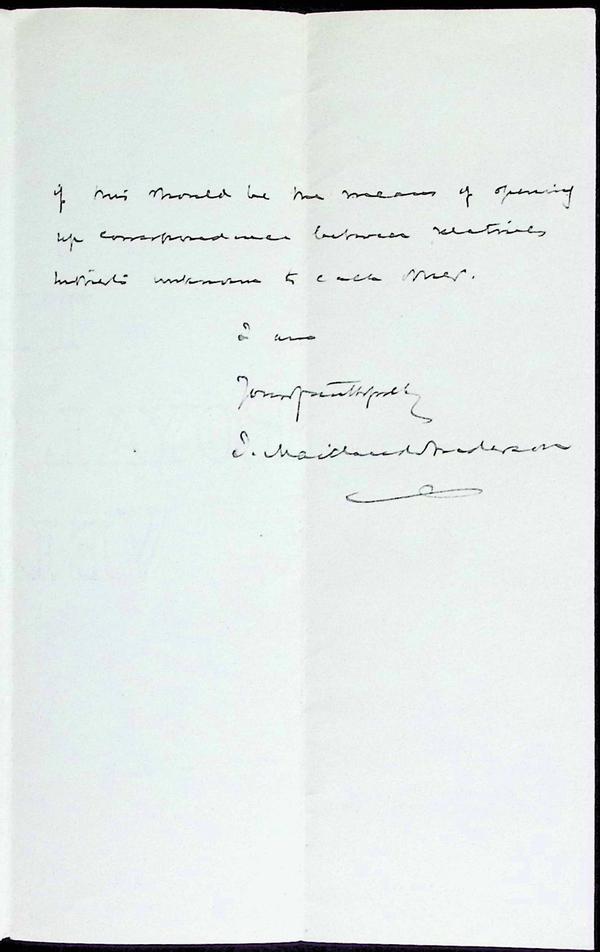 if this should be the means of opening
up correspondence between relatives
hitherto unknown to each other.
I am
Yours faithfully
J. Maitland Anderson